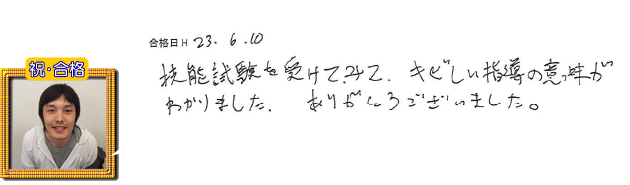 合格日 H 23. 6. 10
祝・合格
技能試験を受けてみて、キビしい指導の意味が
わかりました。 ありがとうございました。